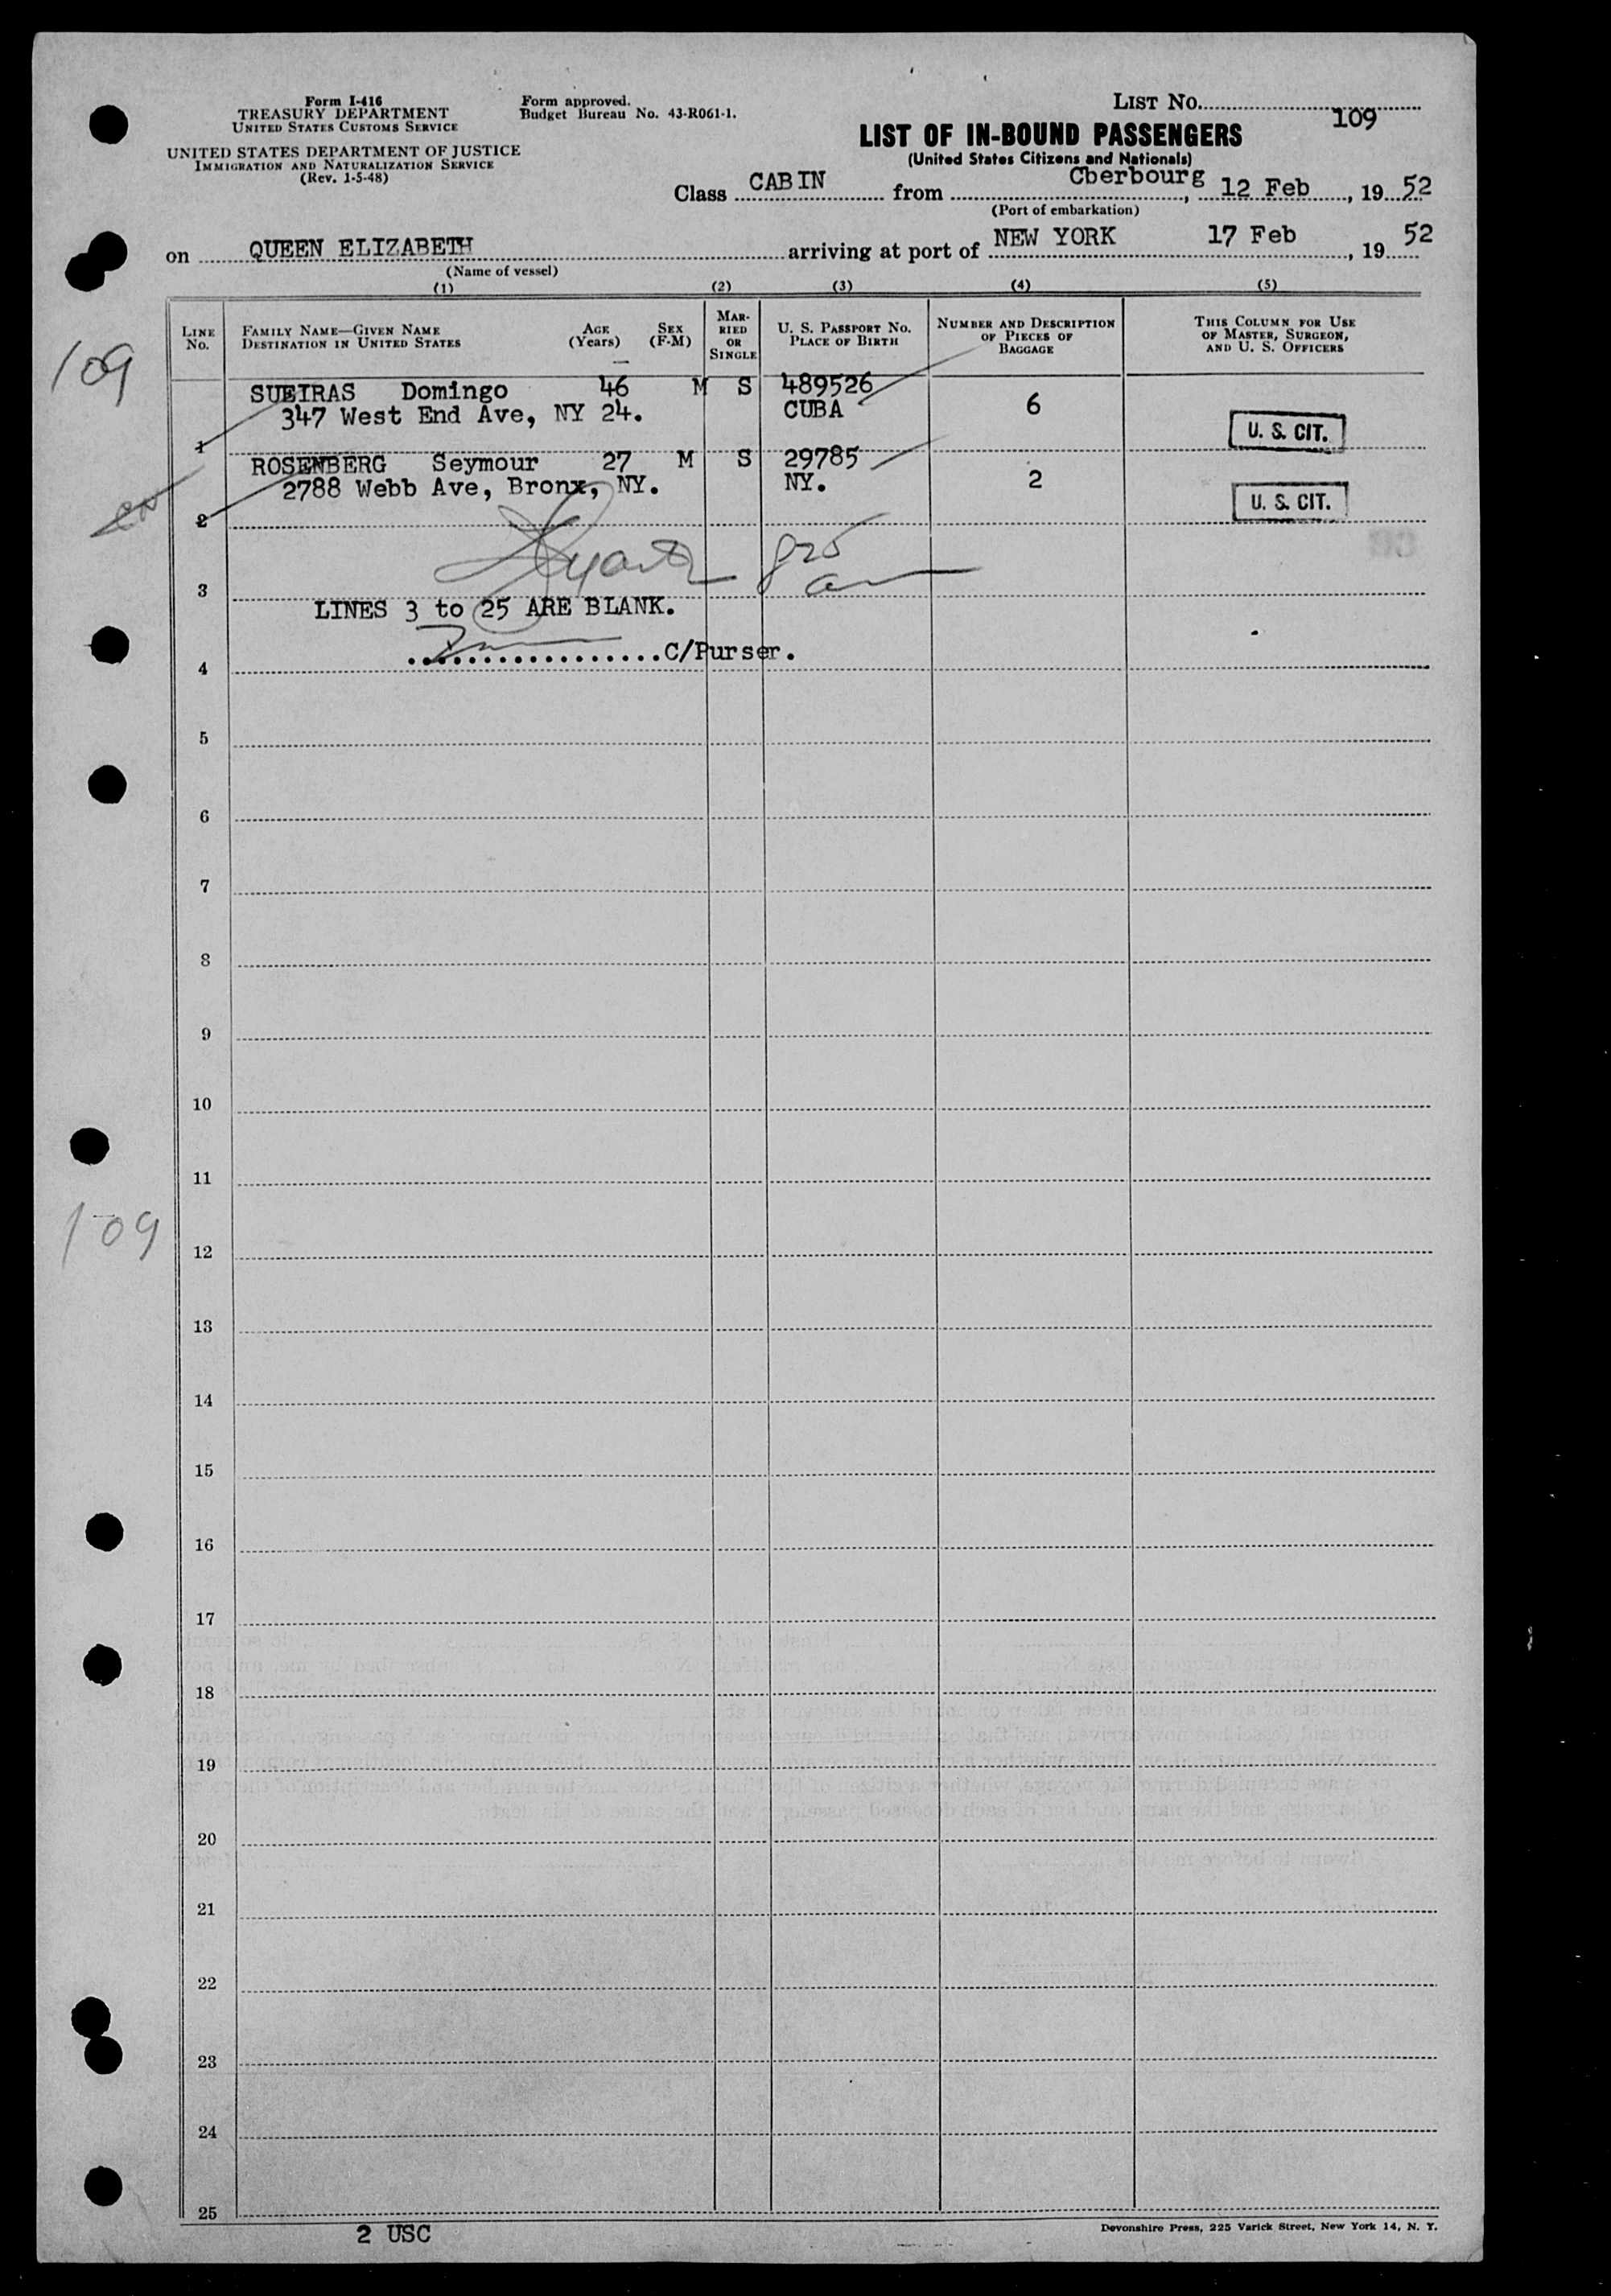 Form I-416
TREASURY DEPARTMENT
UNITED STATES CUSTOMS SERVICE
UNITED STATES DEPARTMENT OF JUSTICE
IMMIGRATION AND NATURALIZATION SERVICE
(Rev. 1-5-48)
Form approved.
Budget Bureau No. 43-R061-1.
LIST No. 109
LIST OF IN-BOUND PASSENGERS
(United States Citizens and Nationals)
Class CABIN from Cberbourg, 12 Feb, 19 52
(Port of embarkation)
on QUEEN ELIZABETH arriving at port of NEW YORK 17 Feb, 19 52
(Name of vessel)
(1) (2) (3) (4) (5)
LINE No. FAMILY NAME—GIVEN NAME DESTINATION IN UNITED STATES AGE (Years) SEX (F-M) MARRIED OR SINGLE U. S. PASSPORT No. PLACE OF BIRTH NUMBER AND DESCRIPTION OF PIECES OF BAGGAGE THIS COLUMN FOR USE OF MASTER, SURGEON, AND U. S. OFFICERS
109
SUEIRAS Domingo 46 M S 489526
347 West End Ave, NY 24. CUBA 6
1 U. S. CIT.
ROSENBERG Seymour 27 M S 29785
2788 Webb Ave, Bronx, NY. NY. 2
2 U. S. CIT.
3
LINES 3 to 25 ARE BLANK.
C/Purser.
4
5
6
7
8
9
10
11
109
12
13
14
15
16
17
18
19
20
21
22
23
24
25
2 USC
Devonshire Press, 225 Varick Street, New York 14, N. Y.